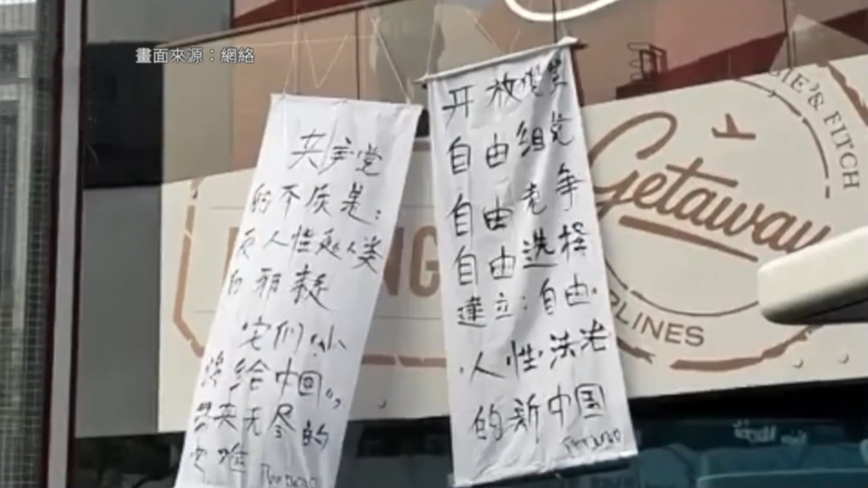 畫面來源：網絡
共产党
的本质是：
反人性反人类
的邪
它们必
将给中国
带来无尽的
灾难
开放党禁
自由组党
自由竞争
自由选择
建立：自由·
·人·性·法治
的新中国
IE'S & FITCH
Getaway
NG
RLINES